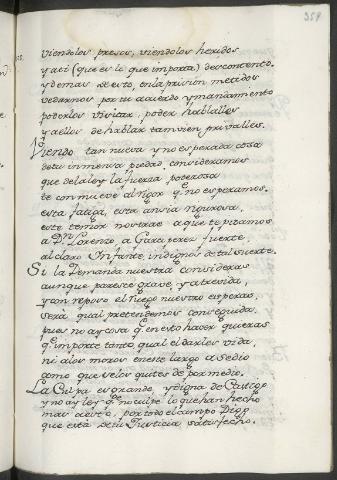 359
viendolos presos, viendolos heridos
y a ti (que es lo que importa) descontento.
y demas de esto, en la prision metidos
vedarnos por tu acuerdo y mandamiento
poderlos visitar, poder hablalles
y a ellos de hablar tambien privalles.
Viendo tan nueva y no esperada cosa
de tu inmensa piedad, consideramos
que de la ley la fuerza poderosa
te conmueve al rigor q.e no esperamos.
esta fatiga, esta ansia rigurosa,
este temor nos trae a que te pidamos
a Dn. Lorenzo, a Garci perez fuerte,
al claro Infante, indignos de tal suerte.
Si la Demanda nuestra consideras
aunque paresce grave, y atrevida,
y con reposo el fuego nuestro esperas,
sera qual pretendemos conseguida.
pues no ay cosa q.e en esto hacer quieras
q.e importe tanto, qual el darles vida,
ni a los moros en este largo asedio
como que se los quites de por medio.
La Culpa es grande, y digna de Castigo
y no ay ley q.e no culpe lo que han hecho
mas de esto, por todo el campo Digo
que està de tu Justicia satisfecho.